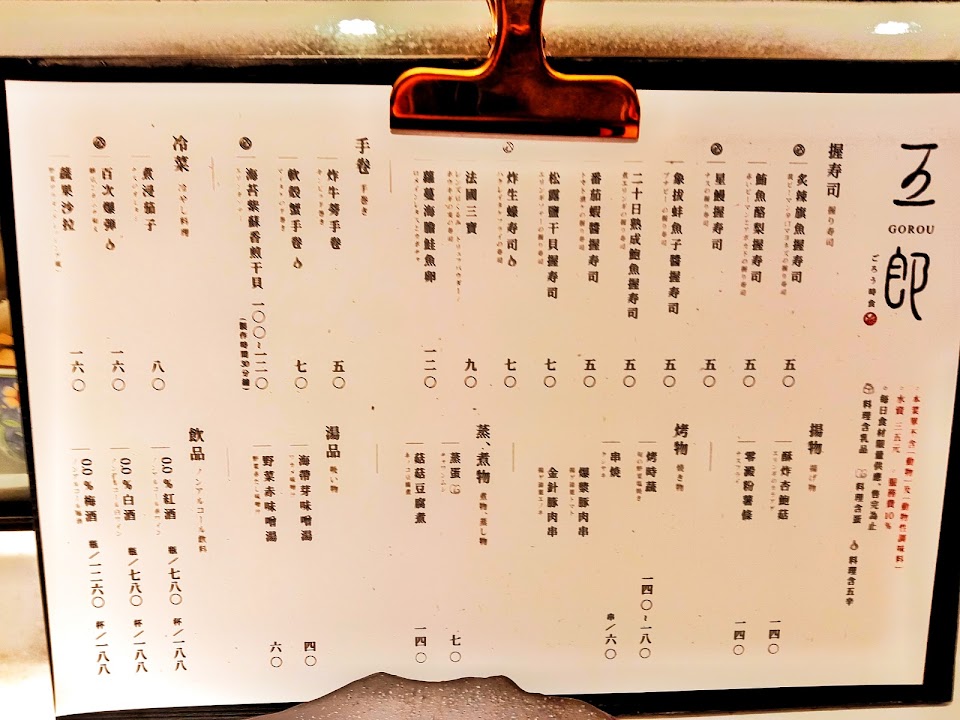 五郎
GOROU
ごろう時食
本菜單不含「動物」及「動物性調味料」
水資 三五元 服務費10%
每日食材嚴量供應、售完為止
料理含乳品 料理含蛋 料理含五辛
握壽司 握り寿司
炙辣旗魚握壽司 五〇
鮪魚酪梨握壽司 五〇
星鰻握壽司 五〇
象拔蚌魚子醬握壽司 五〇
二十日熟成鮑魚握壽司 五〇
番茄蝦醬握壽司 五〇
松露鹽干貝握壽司 七〇
炸生蠔壽司 七〇
法國三寶 九〇
蘿蔓海膽鮭魚卵 一二〇
手卷 手巻き
炸牛蒡手卷 五〇
軟殼蟹手卷 七〇
海苔紫蘇香煎干貝 一〇〇~一二〇
(製作時間30分鐘)
冷菜 冷やし料理
煮浸茄子 八〇
百次爆彈 一六〇
蔬果沙拉 一六〇
揚物 揚げ物
酥炸杏鮑菇 一四〇
零澱粉薯條 一四〇
烤物 焼き物
烤時蔬 一四〇~一八〇
串燒 串/六〇
爆漿豚肉串
金針豚肉串
蒸、煮物 煮物、蒸し物
蒸蛋 七〇
菇菇豆腐煮 一四〇
湯品 吸い物
海帶芽味噌湯 四〇
野菜赤味噌湯 六〇
飲品 ノンアルコール飲料
0.0%紅酒 瓶/七八〇 杯/一八八
0.0%白酒 瓶/七八〇 杯/一八八
0.0%梅酒 瓶/一二六〇 杯/一八八